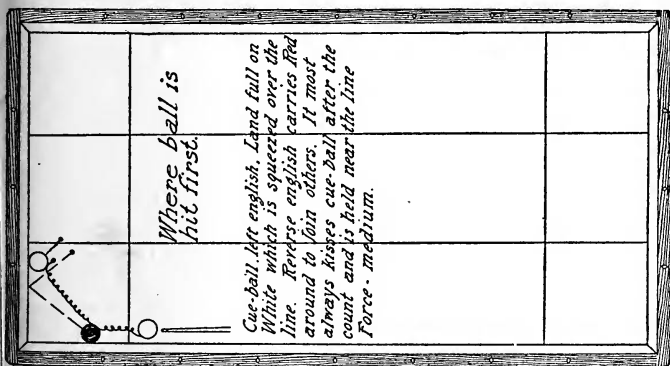 Where ball is
hit first.
Cue-ball, left english. Land full on
White which is squeezed over the
line. Reverse english carries Red
around to join others. It most
always kisses cue-ball after the
count and is held near the line
Force - medium.